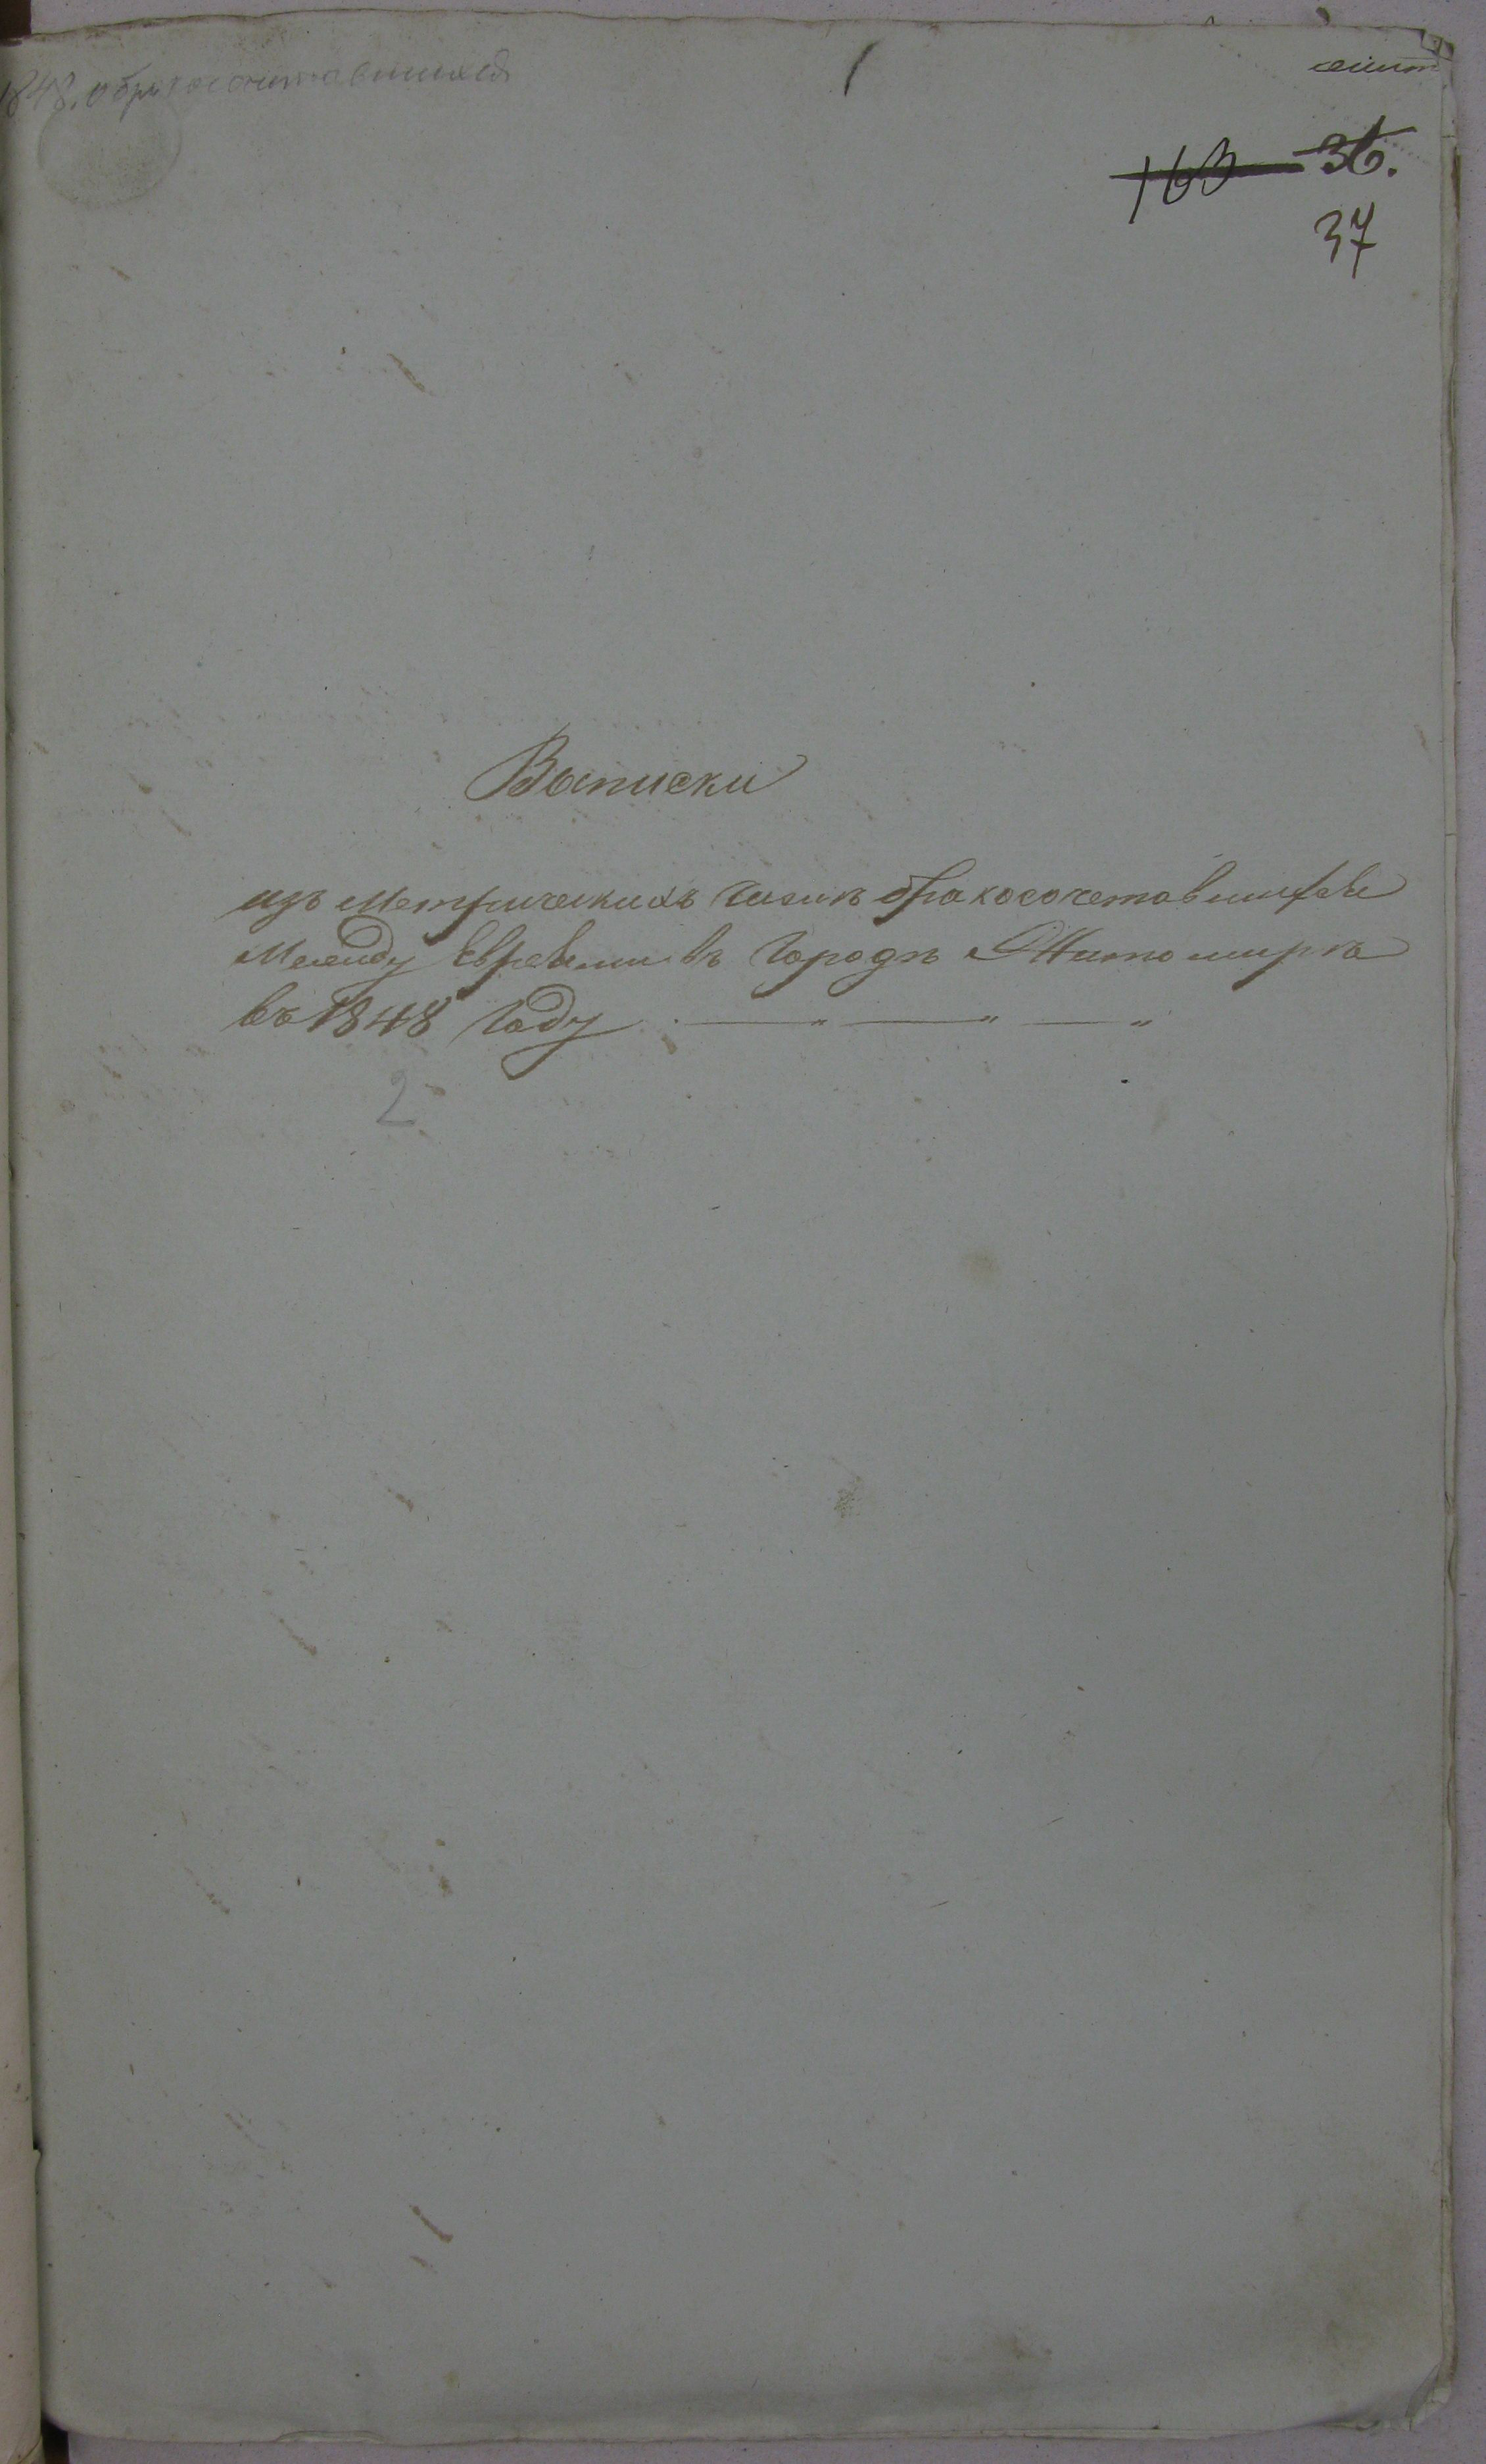 1848. о бракосочетавшихся
1
163 36.
37
Выписки
изъ Метрическихъ книгъ бракосочетавшихся
Между Евреями въ Городѣ Житомирѣ
въ 1848 Году
2